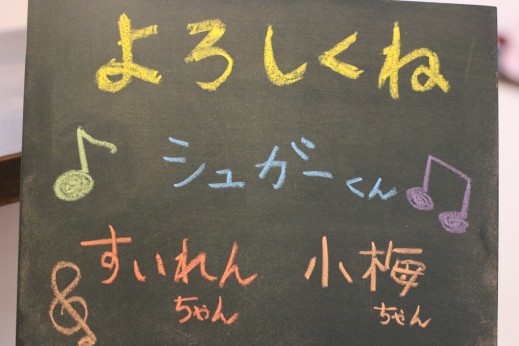 よろしくね
シュガーくん
すいれんちゃん
小梅ちゃん